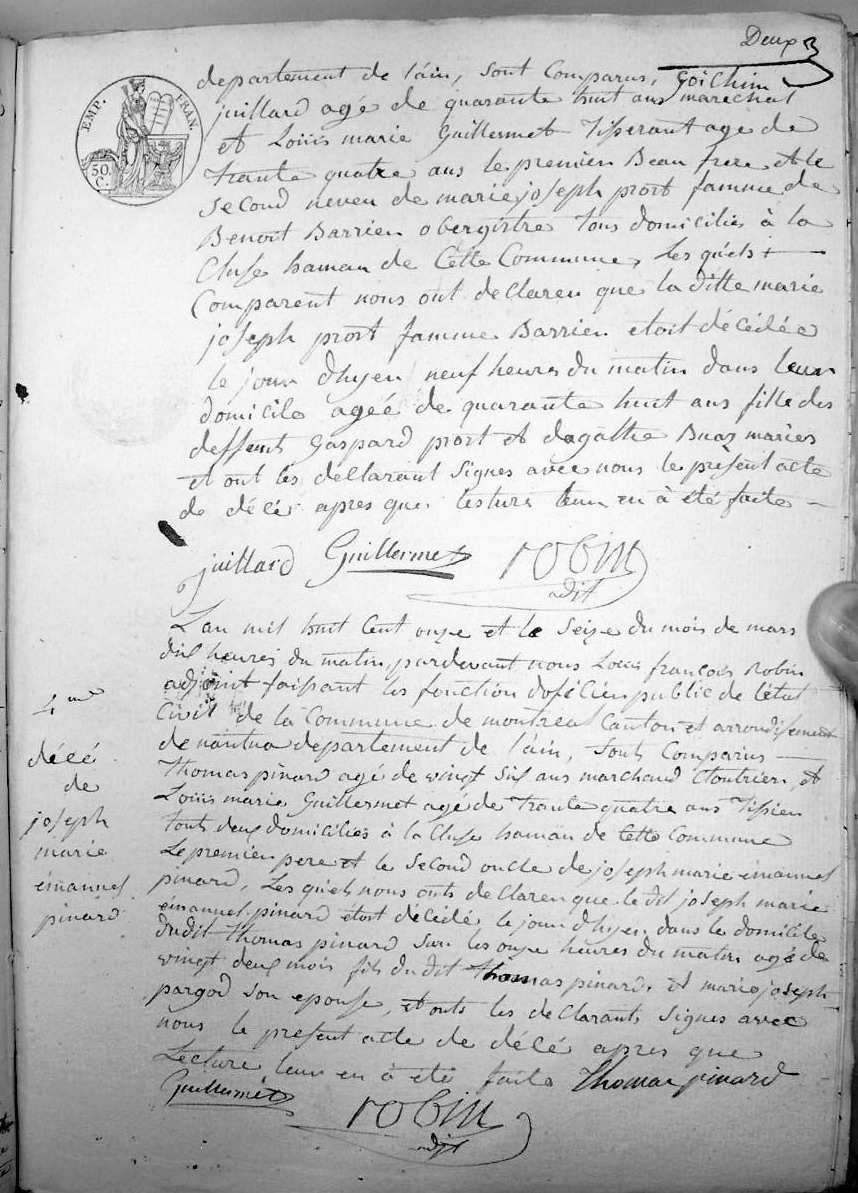 Deux
EMP. FRAN.
50. C.
departement de l'ain, sont Comparus, Goichin
juillard agé de quarante huit ans marechal
et Loüis marie Guillermet Tisserant age de
trante quatre ans le premien Beau frere et le
second neveu de marie joseph prost famme de
Benoit Barrien obergistre tous domicilies à la
Cluse haman de Cette Commune, Les quels
Comparent nous ont declaren que la ditte marie
joseph prost famme Barrien etoit décédée
le jour dhyen neuf heures du matin dans leur
domicile agéé de quarante huit ans fille des
deffunts Gaspard prost et dagathe Buaz mariés
et ont les declarant signes avec nous le présent acte
de décé apres que lesture leur en à été faite
juillard Guillermet robin
adjt
Lan mil huit Cent onze et le seize du mois de mars
dix heures du matin, pardevant nous Louis francois Robin
adjoint faissant les fonction dofécien public de létat
Civil de la Commune de montreal Canton et arrondisement
de nantua departement de l'ain, sonts Comparus
Thomas pinard agé de wingt six ans marchand Cloutrier, et
Loüis marie Guillermet agé de trante quatre ans Tissien
touts deux domiciliés à la Cluse haman de Cette Commune
Le premien pere et le second oncle de joseph marie émanuel
pinard, Les quels nous onts declaren que le dit joseph marie
émanuel pinard etoit décédé, le jour dhyen dans le domicile
dudit Thomas pinard sur les onze heures du matin agé de
wingt deux mois fils du dit Thomas pinard, et marie joseph
pargod son epouse, et onts les declarants signes avec
nous le present acte de décé apres que
Lecture leur en à été faite Thomas pinard
Guillermet
robin
adjt
4me
décé
de
joseph
marie
émanuel
pinard